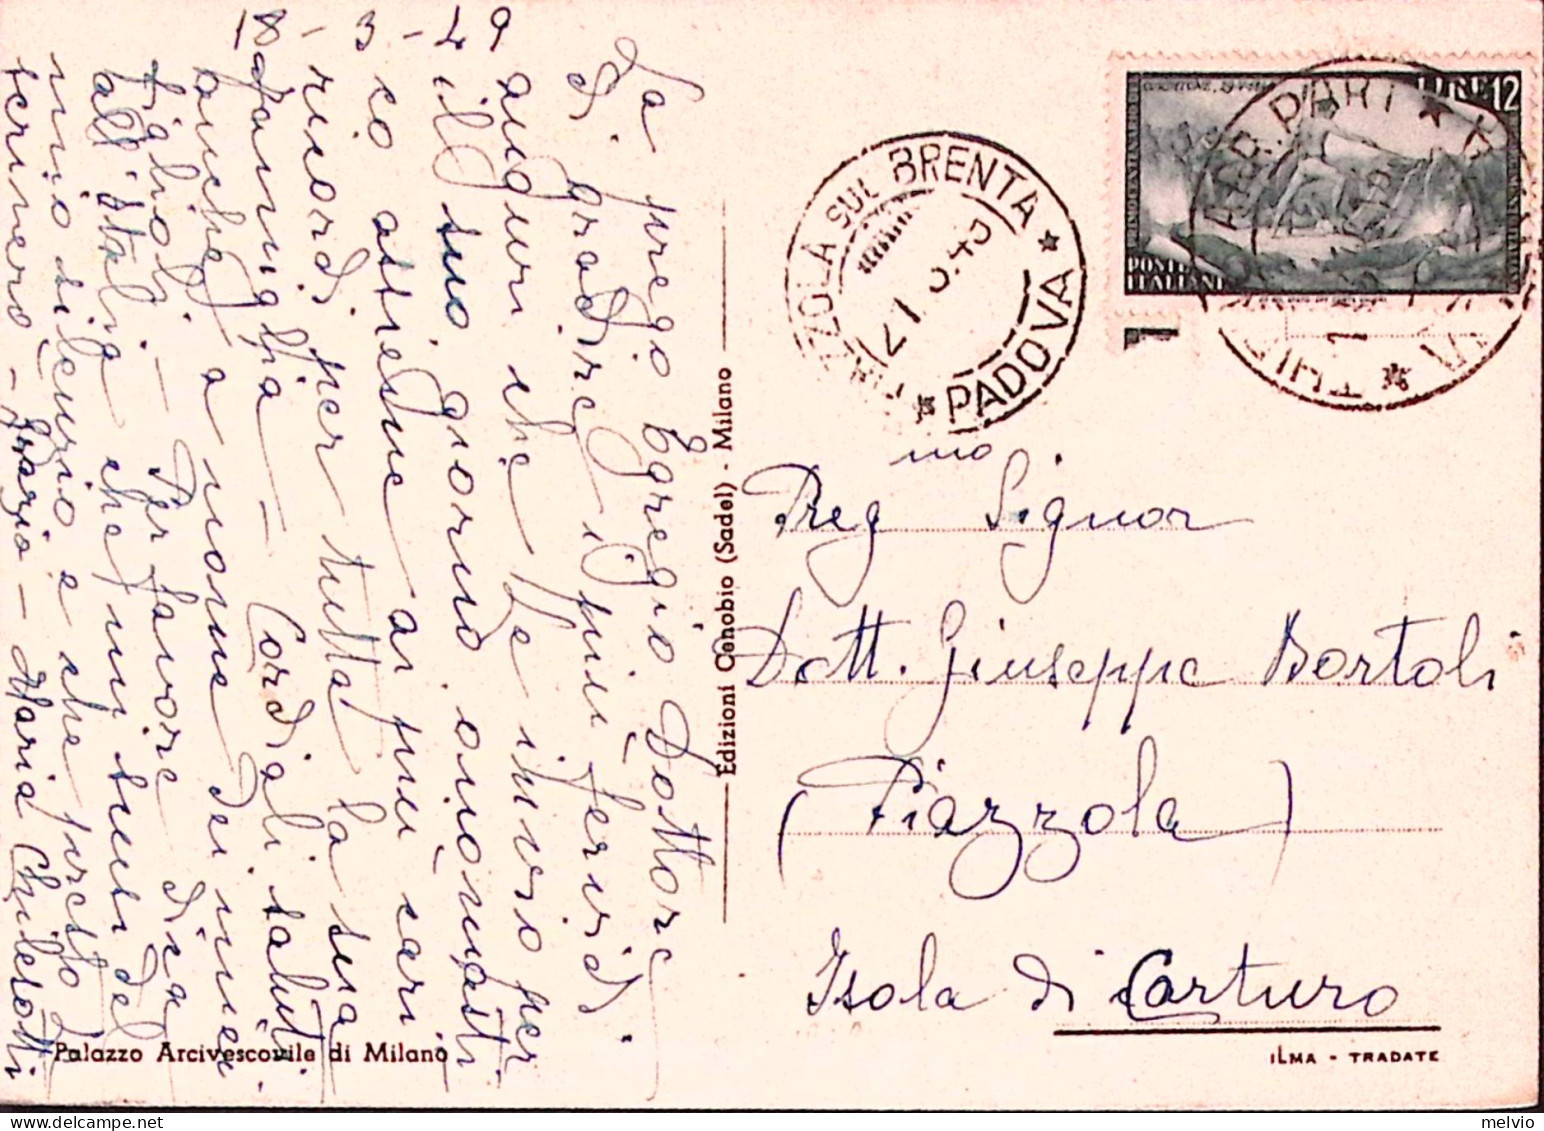 18 - 3 - 49
La prego Egregio Dottore
di gradire i più fervidi
auguri che Le invio per
il suo giorno onomasti
co assieme ai più cari
ricordi per tutta la sua
famiglia - Cordiali saluti
anche a nome dei miei
figlioli - Per favore dica
all'Italia che mi scusi del
mio silenzio e che presto
scriverò - Grazie - Maria Chilesotti
Palazzo Arcivescovile di Milano
Edizioni Cenobio (Sadel) - Milano
PIAZZOLA SUL BRENTA
* PADOVA *
21.3.49
LIRE 12
POSTE
ITALIANE
ARR. PART
1
mo
Preg Signor
Dott. Giuseppe Bortoli
(Piazzola)
Isola di Carturo
ILMA - TRADATE
melvio